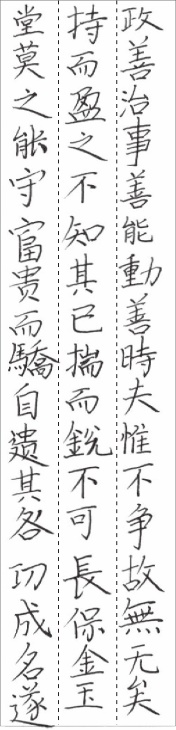 政善治事善能動善時夫惟不争故無无矣
持而盈之不知其已揣而銳不可長保金玉
堂莫之能守富贵而驕自遗其各功成名遂